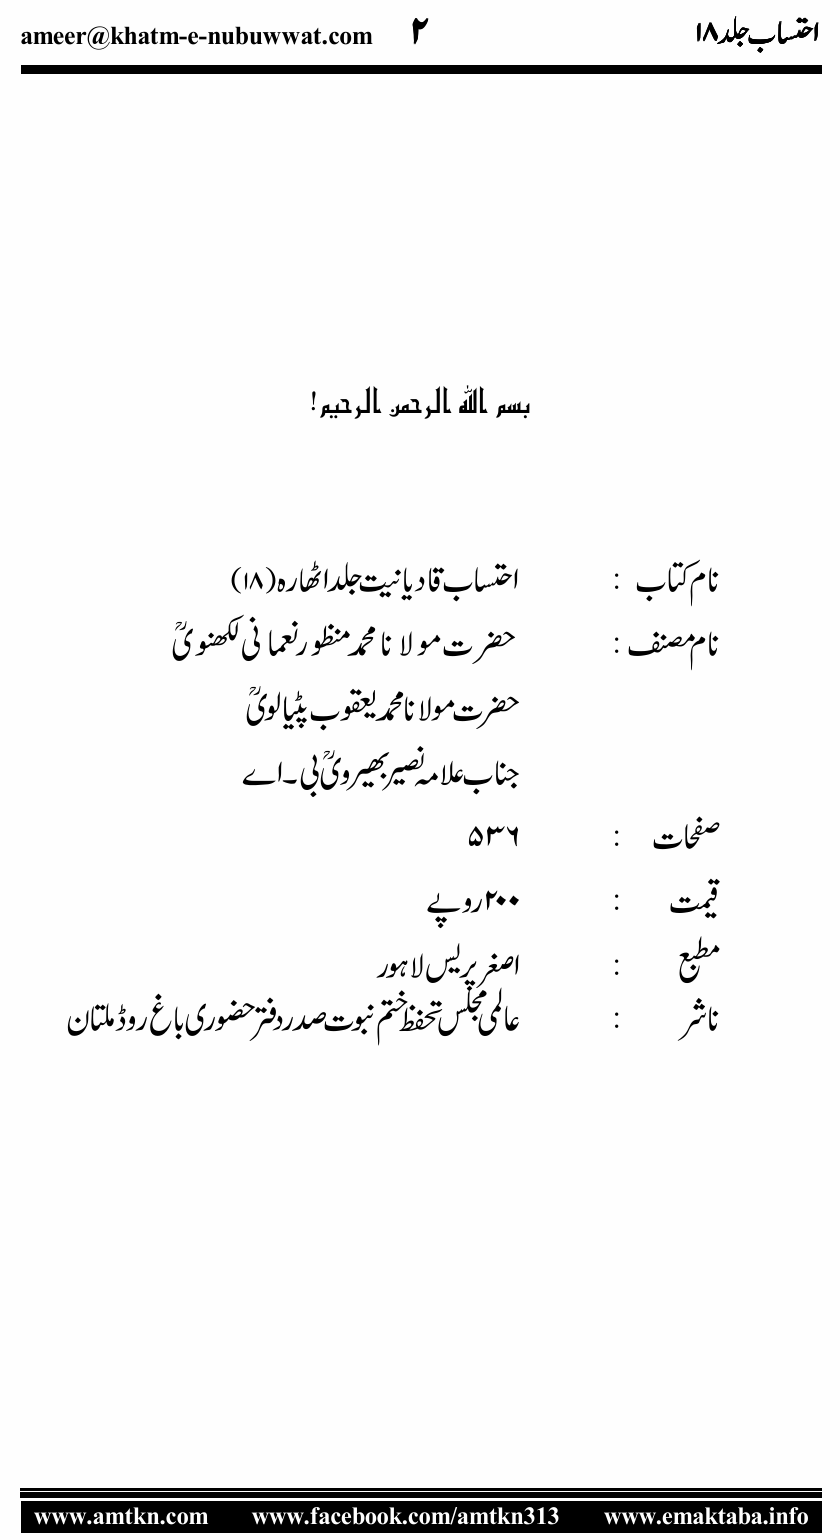 احتساب جلد۱۸ ۲ ameer@khatm-e-nubuwwat.com
بسم اللہ الرحمن الرحیم!
نام کتاب : احتساب قادیانیت جلد اٹھارہ (۱۸)
نام مصنف : حضرت مولانا محمد منظور نعمانی لکھنویؒ
حضرت مولانا محمد یعقوب پٹیالویؒ
جناب علامہ نصیر بھیرویؒ بی۔اے
صفحات : ۵۳۶
قیمت : ۲۰۰ روپے
مطبع : اصغر پریس لاہور
ناشر : عالمی مجلس تحفظ ختم نبوت صدر دفتر حضوری باغ روڈ ملتان
www.amtkn.com www.facebook.com/amtkn313 www.emaktaba.info